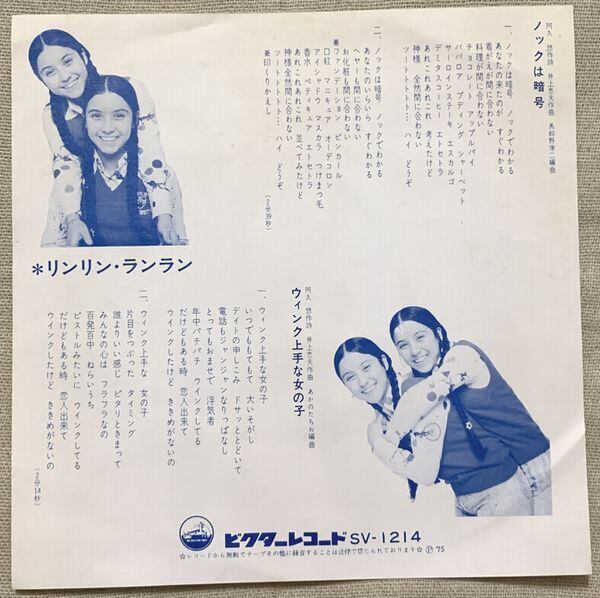 ノックは暗号
阿久 悠作詩 井上忠夫作曲 馬飼野康二編曲
一、ノックは暗号 ノックでわかる
あなたの来たのが すぐわかる
着がえが間に合わない
料理が間に合わない
チョコレート アップルパイ
ババロア プディング シャーベット・
サーロインステーキ エスカルゴ
デミタスコーヒー エトセトラ
あれこれあれこれ 考えたけど
神様 全然間に合わない
ツートトトトト… ハイ どうぞ
二、ノックは暗号 ノックでわかる
あなたのいらいら すぐわかる
ヘヤーも間に合わない
お化粧も間に合わない
※ファンデーション ピンカール
口紅 マニキュア オーデコロン
アイシャドウ マスカラ つけまつ毛
香水 ペディキュア エトセトラ
あれこれあれこれ 並べてみたけど
神様 全然間に合わない
ツートトトトト… ハイ どうぞ
※印くりかえし
(2分39秒)
*リンリン・ランラン
ウィンク上手な女の子
阿久 悠作詩 井上忠夫作曲 あかのたちお編曲
一、ウィンク上手な女の子
いつでももてもて 大いそがし
デイトの申しこみ ドサッととどいて
電話もジャンジャンなりっぱなし
とってもおませで 浮気者
年中パチパチ ウインクしてる
だけどもある時 恋人出来て
ウインクしたけど ききめがないの
二、ウィンク上手な 女の子
片目をつぶった タイミング
誰よりいい感じ ピタリときまって
みんなの心は フラフラなの
百発百中 ねらいうち
ピストルみたいに ウインクしてる
だけどもある時 恋人出来て
ウインクしたけど ききめがないの
(2分14秒)
ビクターレコード SV-1214
☆レコードから無断でテープその他に録音することは法律で禁じられております☆ Ⓟ75